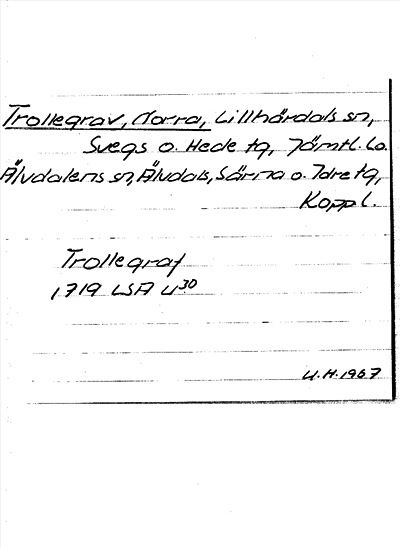 Trollegrav, Norra, Lillhärdals sn,
Svegs o. Hede tg, Jämtl. lo.
Älvdalens sn, Älvdals, Särna o. Idre tg,
Koppl.
Trollegraf
1719 LSA U30
U.H. 1967